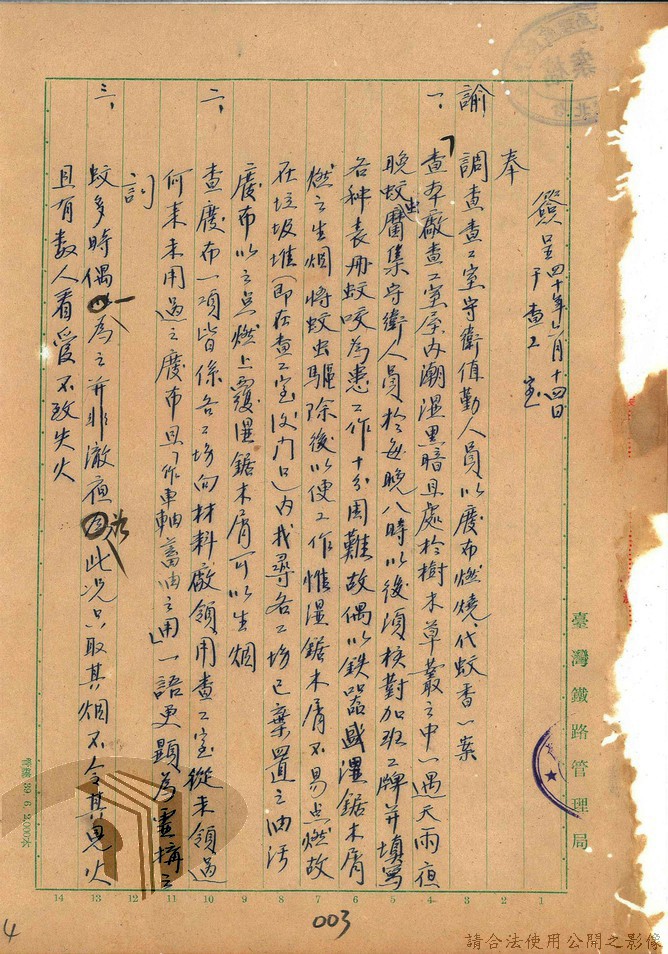 簽呈 四十年六月十四日
于查工室
奉
諭
調查查工室守衛值勤人員以廢布燃燒代蚊香一案
一、查本廠查工室屋內潮濕黑暗且處於樹木草叢之中一遇天雨夜
晚蚊虫蘭集守衛人員於每晚八時以後須核對加班工牌并填寫
各种表冊蚊咬為患工作十分困難故偶以鉄器盛濕鋸木屑
燃之生烟將蚊虫驅除後以便工作惟濕鋸木屑不易点燃故
在垃圾堆(即在查工室後门口)內找尋各工場已棄置之油污
廢布以之点燃上覆濕鋸木屑可以生烟
二、查廢布一項皆係各工場向材料廠領用查工室從未領過
何來未用過之廢布且「作車軸蓄油之用」一語更顯為虛構之
詞
三、蚊多時偶一為之并非澈夜為此況只取其烟不令其見火
且有数人看受不致失火
臺灣鐵路管理局
1
2
3
4
5
6
7
8
9
10
11
12
13
14
003
4
請合法使用公開之影像